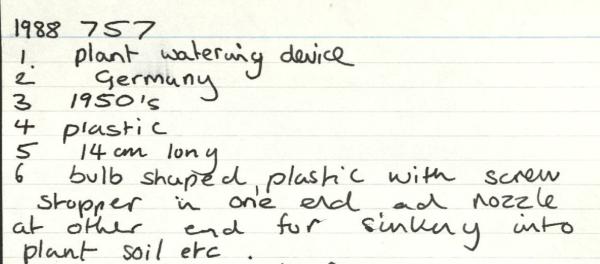 1988 757
1. plant watering device
2 Germany
3 1950's
4 plastic
5 14 cm long
6 bulb shaped, plastic with screw
stopper in one end ad nozzle
at other end for sinking into
plant soil etc.